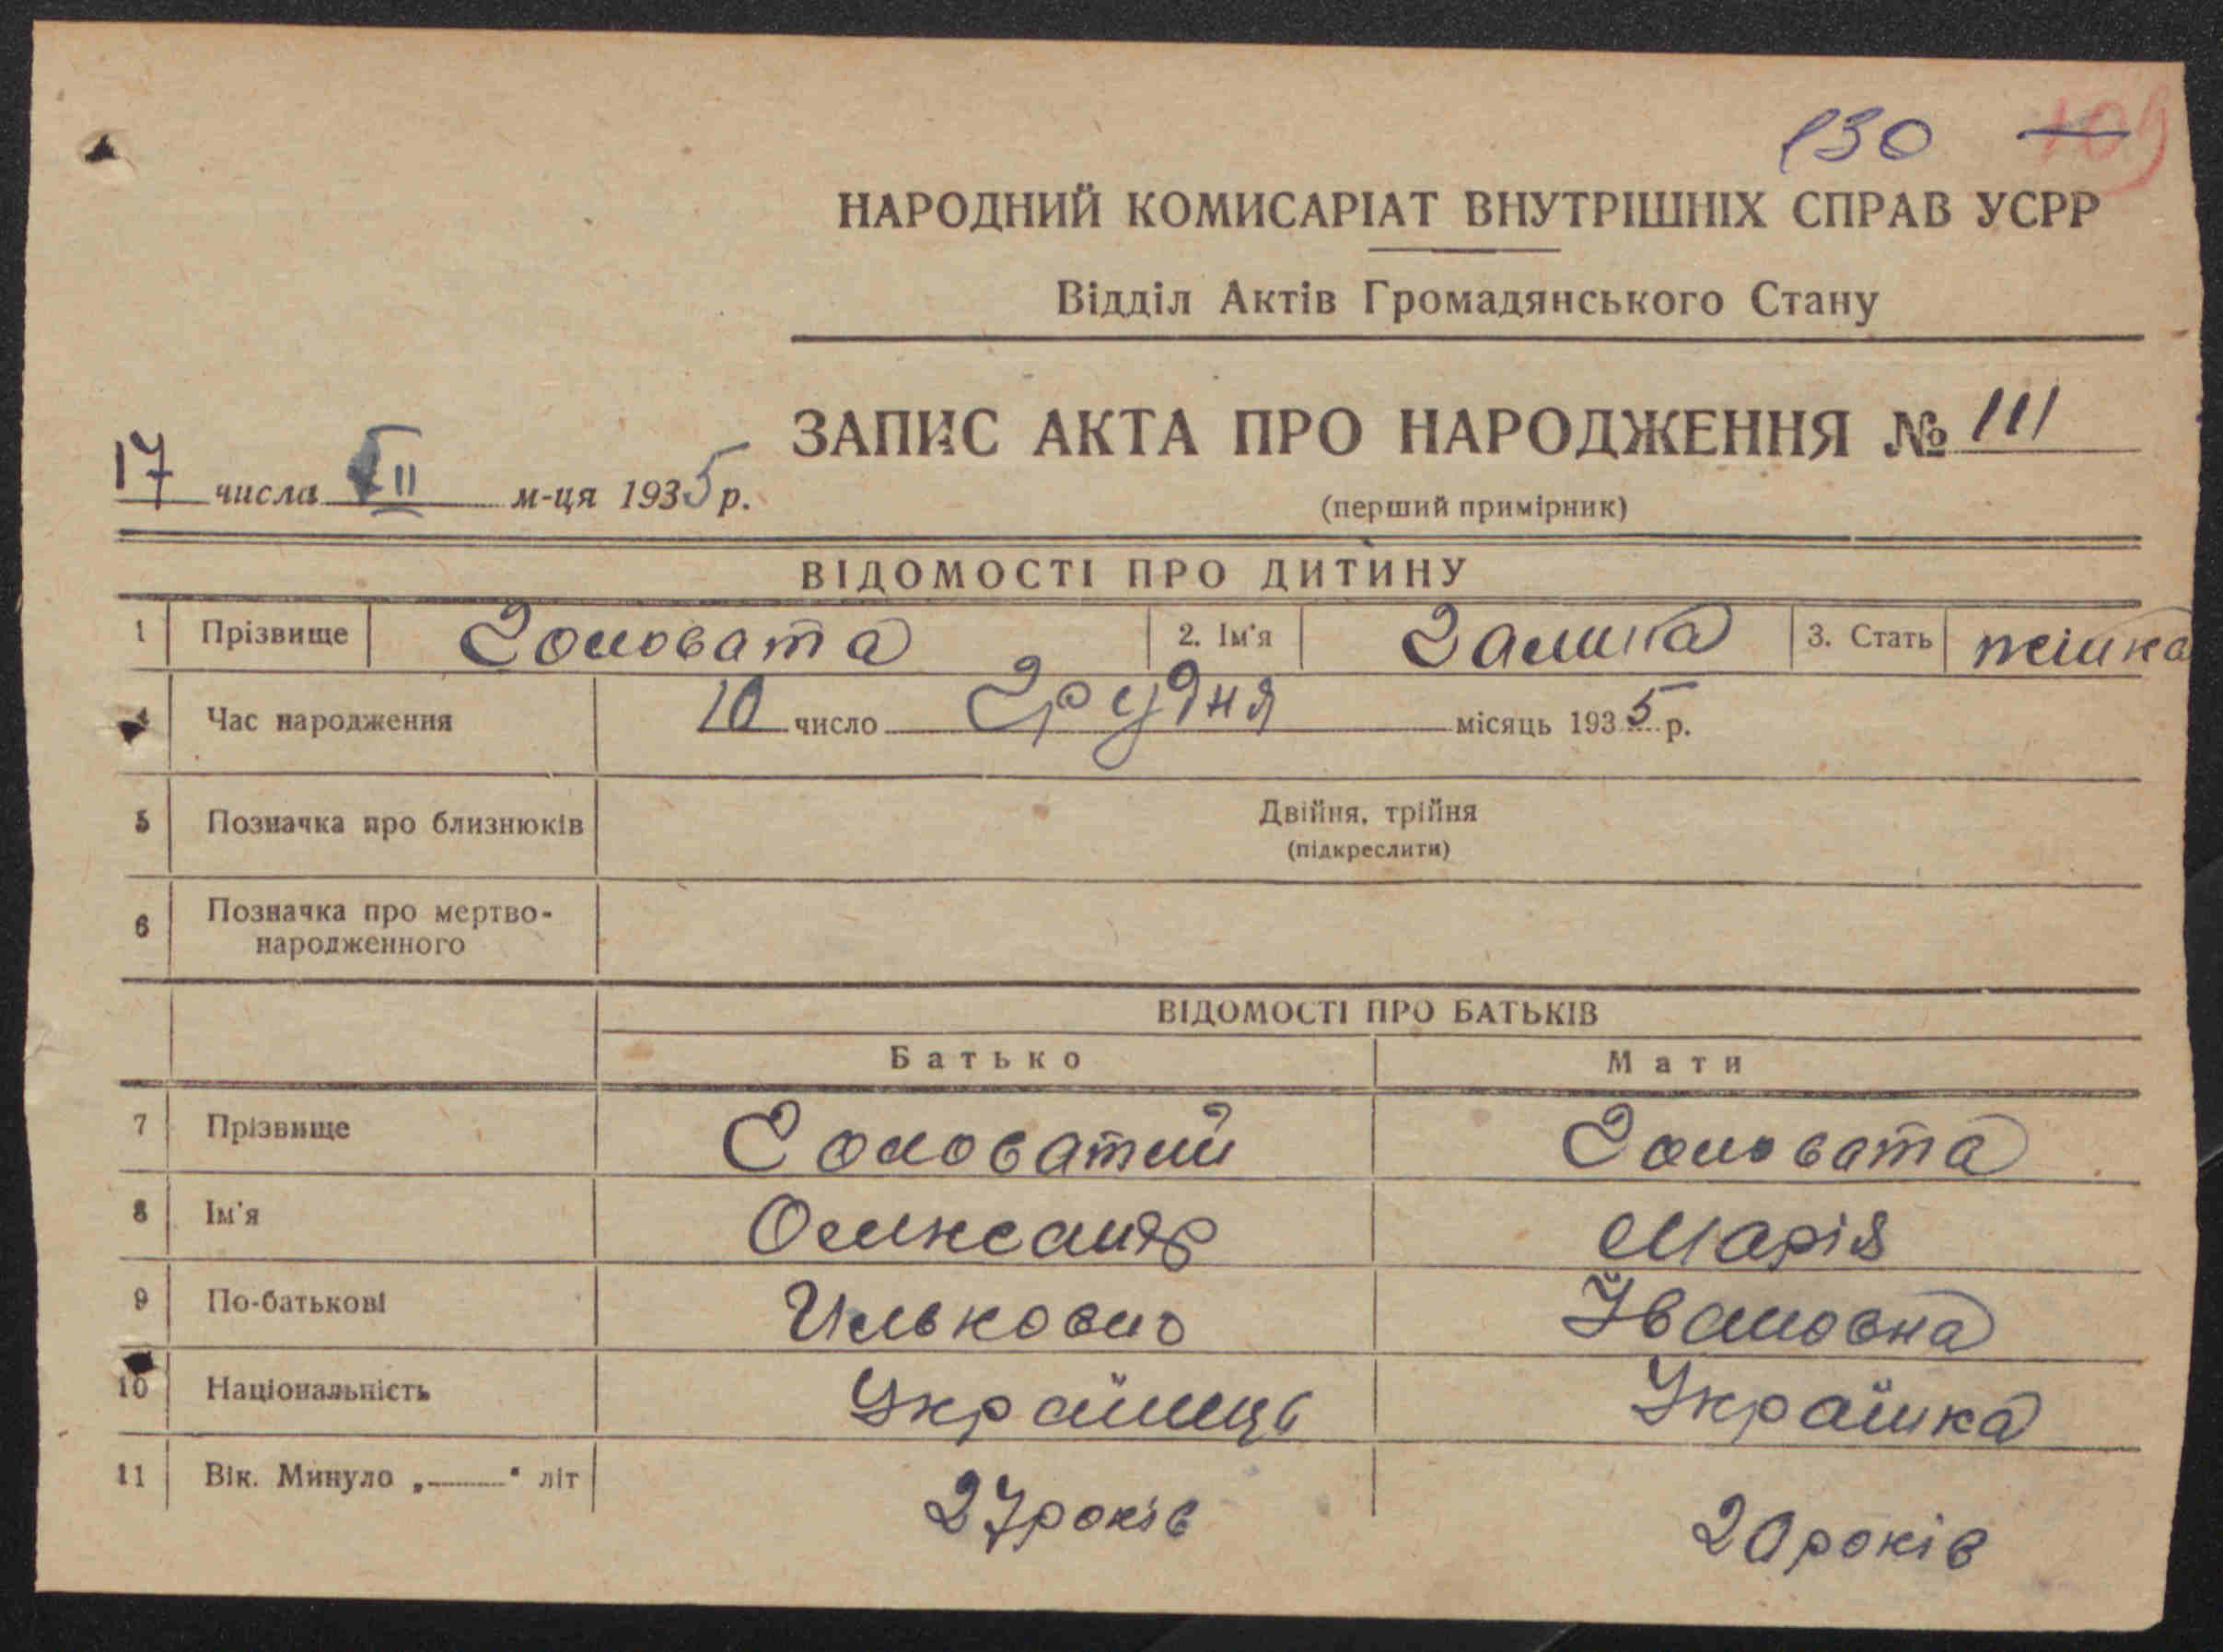 130 109
НАРОДНИЙ КОМИСАРІАТ ВНУТРІШНІХ СПРАВ УСРР
Відділ Актів Громадянського Стану
ЗАПИС АКТА ПРО НАРОДЖЕННЯ № 111
17 числа XII м-ця 1935 р.
(перший примірник)
ВІДОМОСТІ ПРО ДИТИНУ
1 Прізвище Головата 2. Ім'я Галина 3. Стать жінка
4 Час народження 10 число Грудня місяць 1935 р.
5 Позначка про близнюків Двійня, трійня
(підкреслити)
6 Позначка про мертво-
народженного
ВІДОМОСТІ ПРО БАТЬКІВ
Батько Мати
7 Прізвище Головатий Головата
8 Ім'я Олександр Марія
9 По-батькові Ількович Івановна
10 Національність Українець Українка
11 Вік. Минуло „——" літ 27 років 20 років